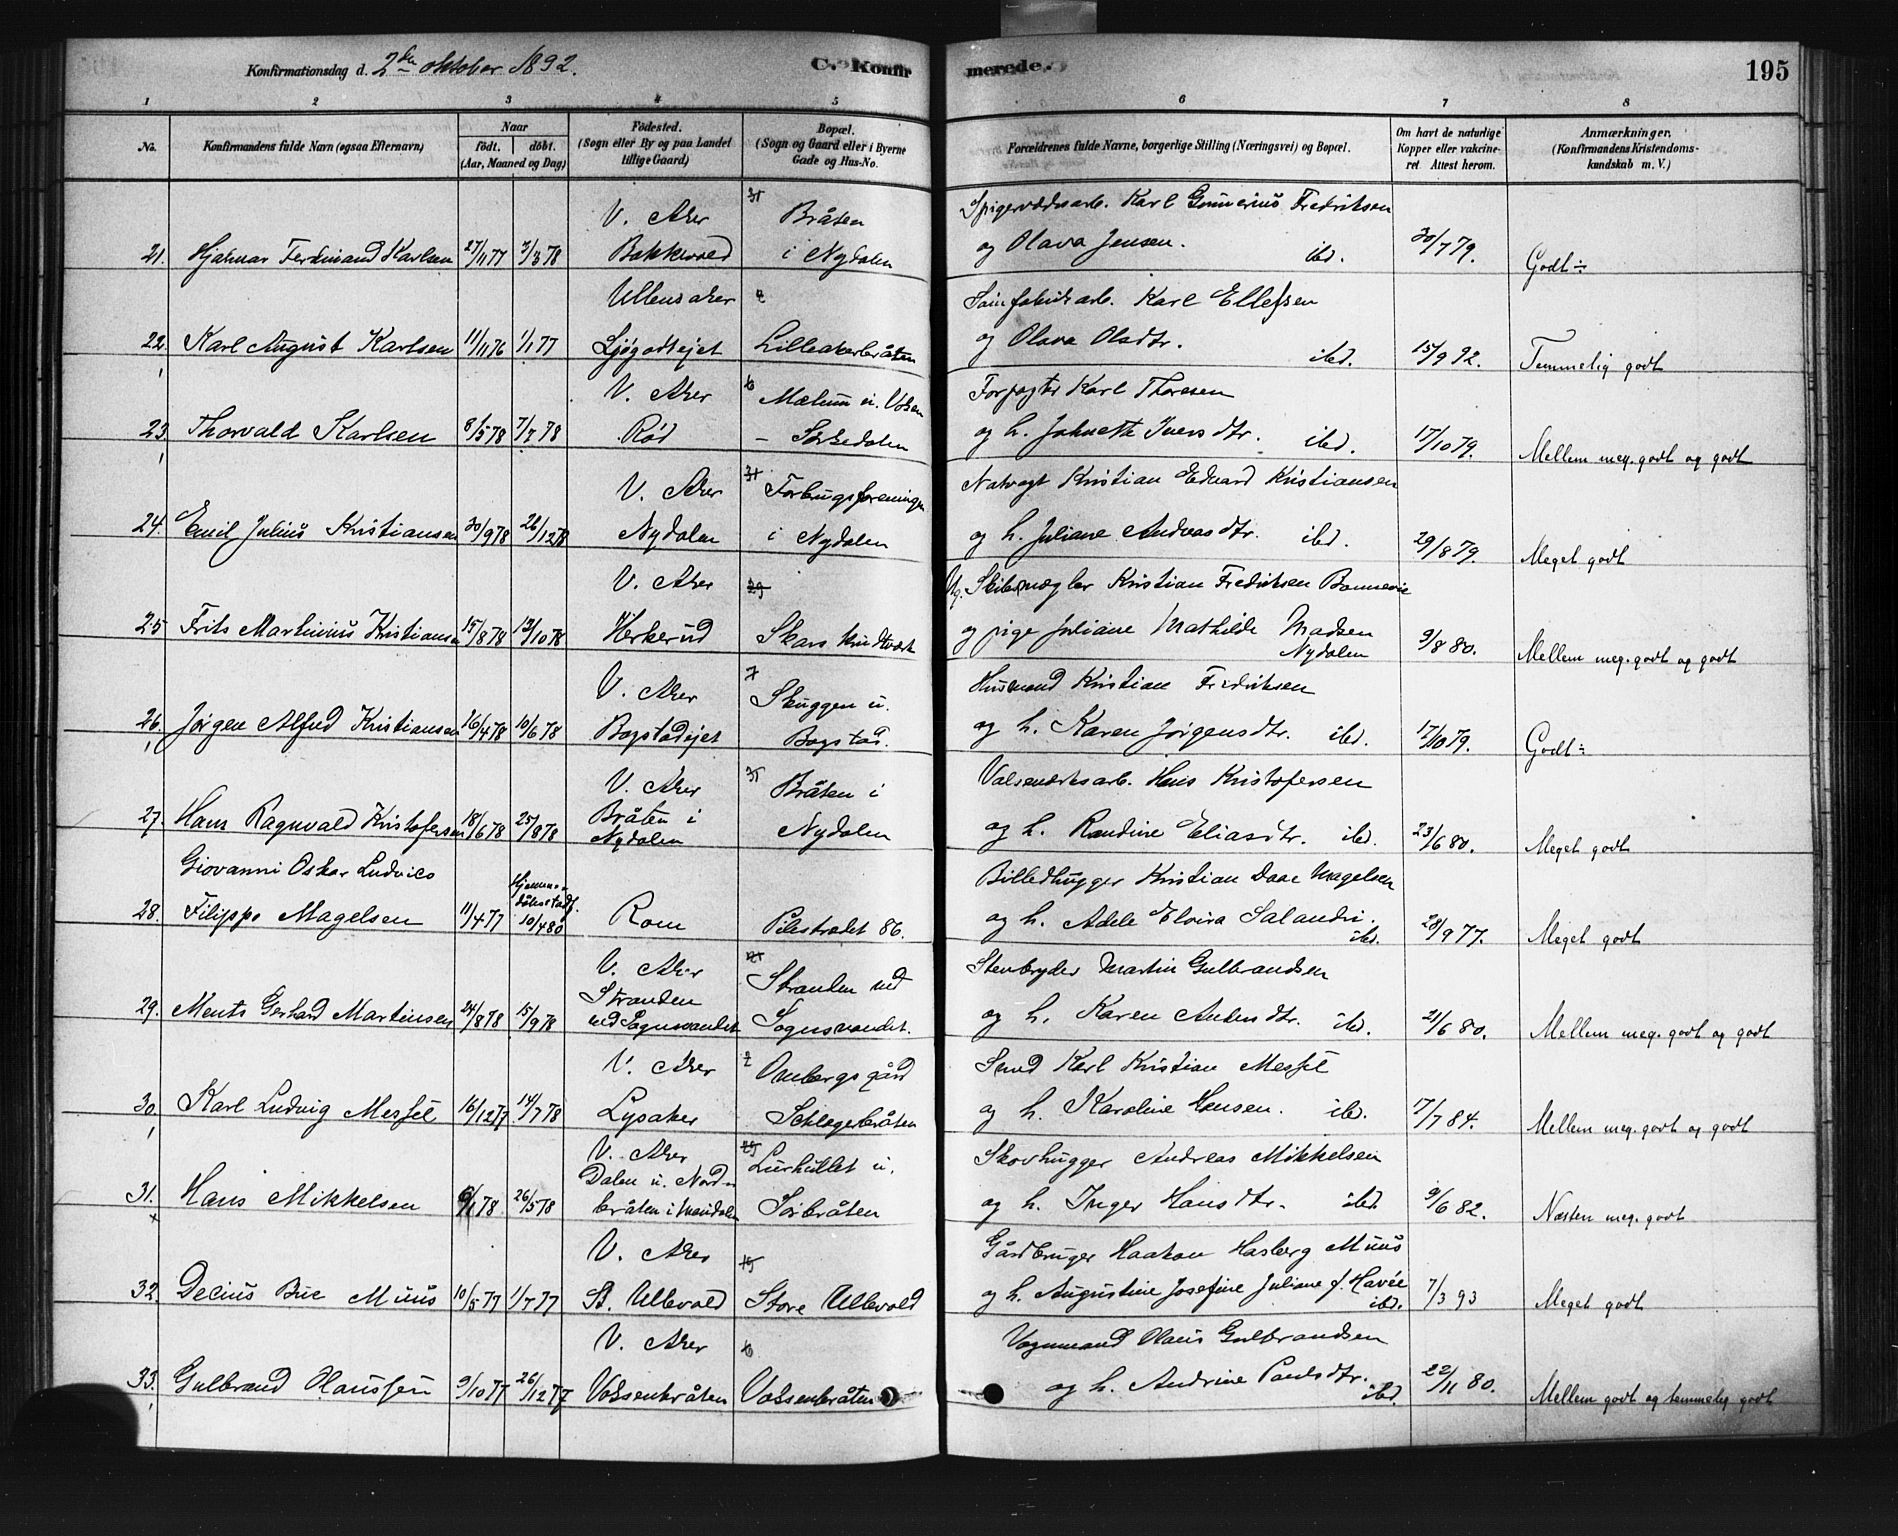 Konfirmationsdag d. 2den oktober 1892.
C. Konfir
merede.
195
1 2 3 4 5 6 7 8
No.
Konfirmandens fulde Navn (ogsaa Efternavn)
Naar
födt. döbt.
(Aar, Maaned og Dag)
Födested.
(Sogn eller By og paa Landet
tillige Gaard)
Bopæl.
(Sogn og Gaard eller i Byerne
Gade og Hus-No.
Forældrenes fulde Navne, borgerlige Stilling (Næringsvei) og Bopæl.
Om havt de naturlige
Kopper eller vakcine-
ret Attest herom.
Anmærkninger.
(Konfirmandens Kristendoms-
kundskab m. V.)
V. Aker Bråten Karl Gunnerius Fredriksen
21. Hjalmar Ferdinand Karlsen 27/11 77 3/3 78 Bakkevold i Nydalen og Olava Jensen. ibd. 30/7 79. Godt÷
Ullensaker Karl Ellefsen
22. Karl August Karlsen 11/11 76 1/1 77 Lilleakerbråten og Olava Olsdtr. ibd. 15/9 92. Temmelig godt
V. Aker Mælum u. Voksen Forpagter Karl Thoresen
23. Thorvald Karlsen 8/5 78 7/7 78 Rød – Sørkedalen og h. Johnette Iversdtr. ibd. 17/10 79. Mellem meg. godt og godt
V. Aker Forbrugsforeningen Natvagt Kristian Edvard Kristiansen
24. Emil Julius Kristiansen 30/9 78 26/12 78 Nydalen i Nydalen og h. Juliane Andreasdtr. ibd. 29/8 79. Meget godt
V. Aker 29 Ug. Skibsmægler Kristian Fredriksen Bonnevie
25 Frits Martinius Kristiansen 15/8 78 13/10 78 Herkerud og pige Juliane Mathilde Madsen
Nydalen 9/8 80. Mellem meg. godt og godt
V. Aker 7 Skuggen u. Husmand Kristian Fredriksen
26. Jørgen Alfred Kristiansen 16/4 78 10/6 78 Bogstadejet Bogstad. og h. Karen Jørgensdtr. ibd. 17/10 79. Godt÷
V. Aker Bråten i Valseværksarb. Hans Kristofersen
27. Hans Ragnvald Kristofersen 18/6 78 25/8 78 Bråten i
Nydalen Nydalen og h. Randine Eliasdtr. ibd. 23/6 80. Meget godt
Giovanni Oskar Ludvico Hjemme-
døbt stadf. Billedhugger Kristian Daae Magelsen
28. Filippo Magelsen 11/4 77 10/4 80 Rom Pilestrædet 86. og h. Adele Elvira Salandri.
ibd. 28/9 77. Meget godt
V. Aker Stranden ved Stenbryder Martin Gulbrandsen
29. Ments Gerhard Martinsen 24/8 78 15/9 78 Stranden
ved Sognsvandet Sognsvandet. og h. Karen Andersdtr. ibd. 21/6 80. Mellem meg. godt og godt
V. Aker 2 Smed Karl Kristian Messel
30. Karl Ludvig Messel 16/12 77 14/7 78 Lysaker og h. Karoline Hansen. ibd. 17/7 84. Mellem meg. godt og godt
V. Aker Lurhullet u. Skovhugger Andreas Mikkelsen
31. Hans Mikkelsen 6/1 78 26/5 78 Dalen u. Nord-
bråten i Maridalen Sørbråten og h. Inger Hansdtr. ibd. 9/6 82. Næsten meg. godt
V. Aker Gårdbruger Haakon Hasberg Muus
32. Decius Bue Muus 10/5 77 1/7 77 St. Ullevold Store Ullevold og h. Augustine Josefine Juliane f. Havée
ibd. 7/3 93 Meget godt
V. Aker Vognmand Olaus Gulbrandsen
33. Gulbrand Olaussen 9/10 77 26/12 77 Voksenbråten Voksenbråten og h. Andrine Paulsdtr.
ibd. 22/11 80. Mellem godt og temmelig godt